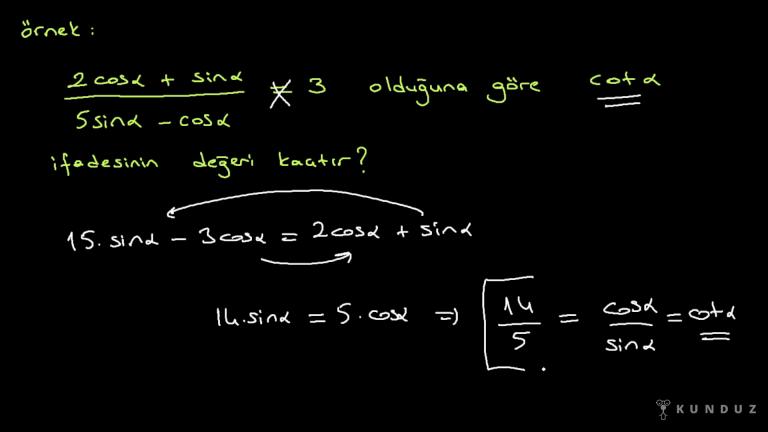 örnek :
2cosα + sinα / 5sinα - cosα = 3 olduğuna göre cotα
ifadesinin değeri kaçtır?
15.sinα - 3cosα = 2cosα + sinα
14.sinα = 5.cosα => 14/5 = cosα/sinα = cotα
KUNDUZ